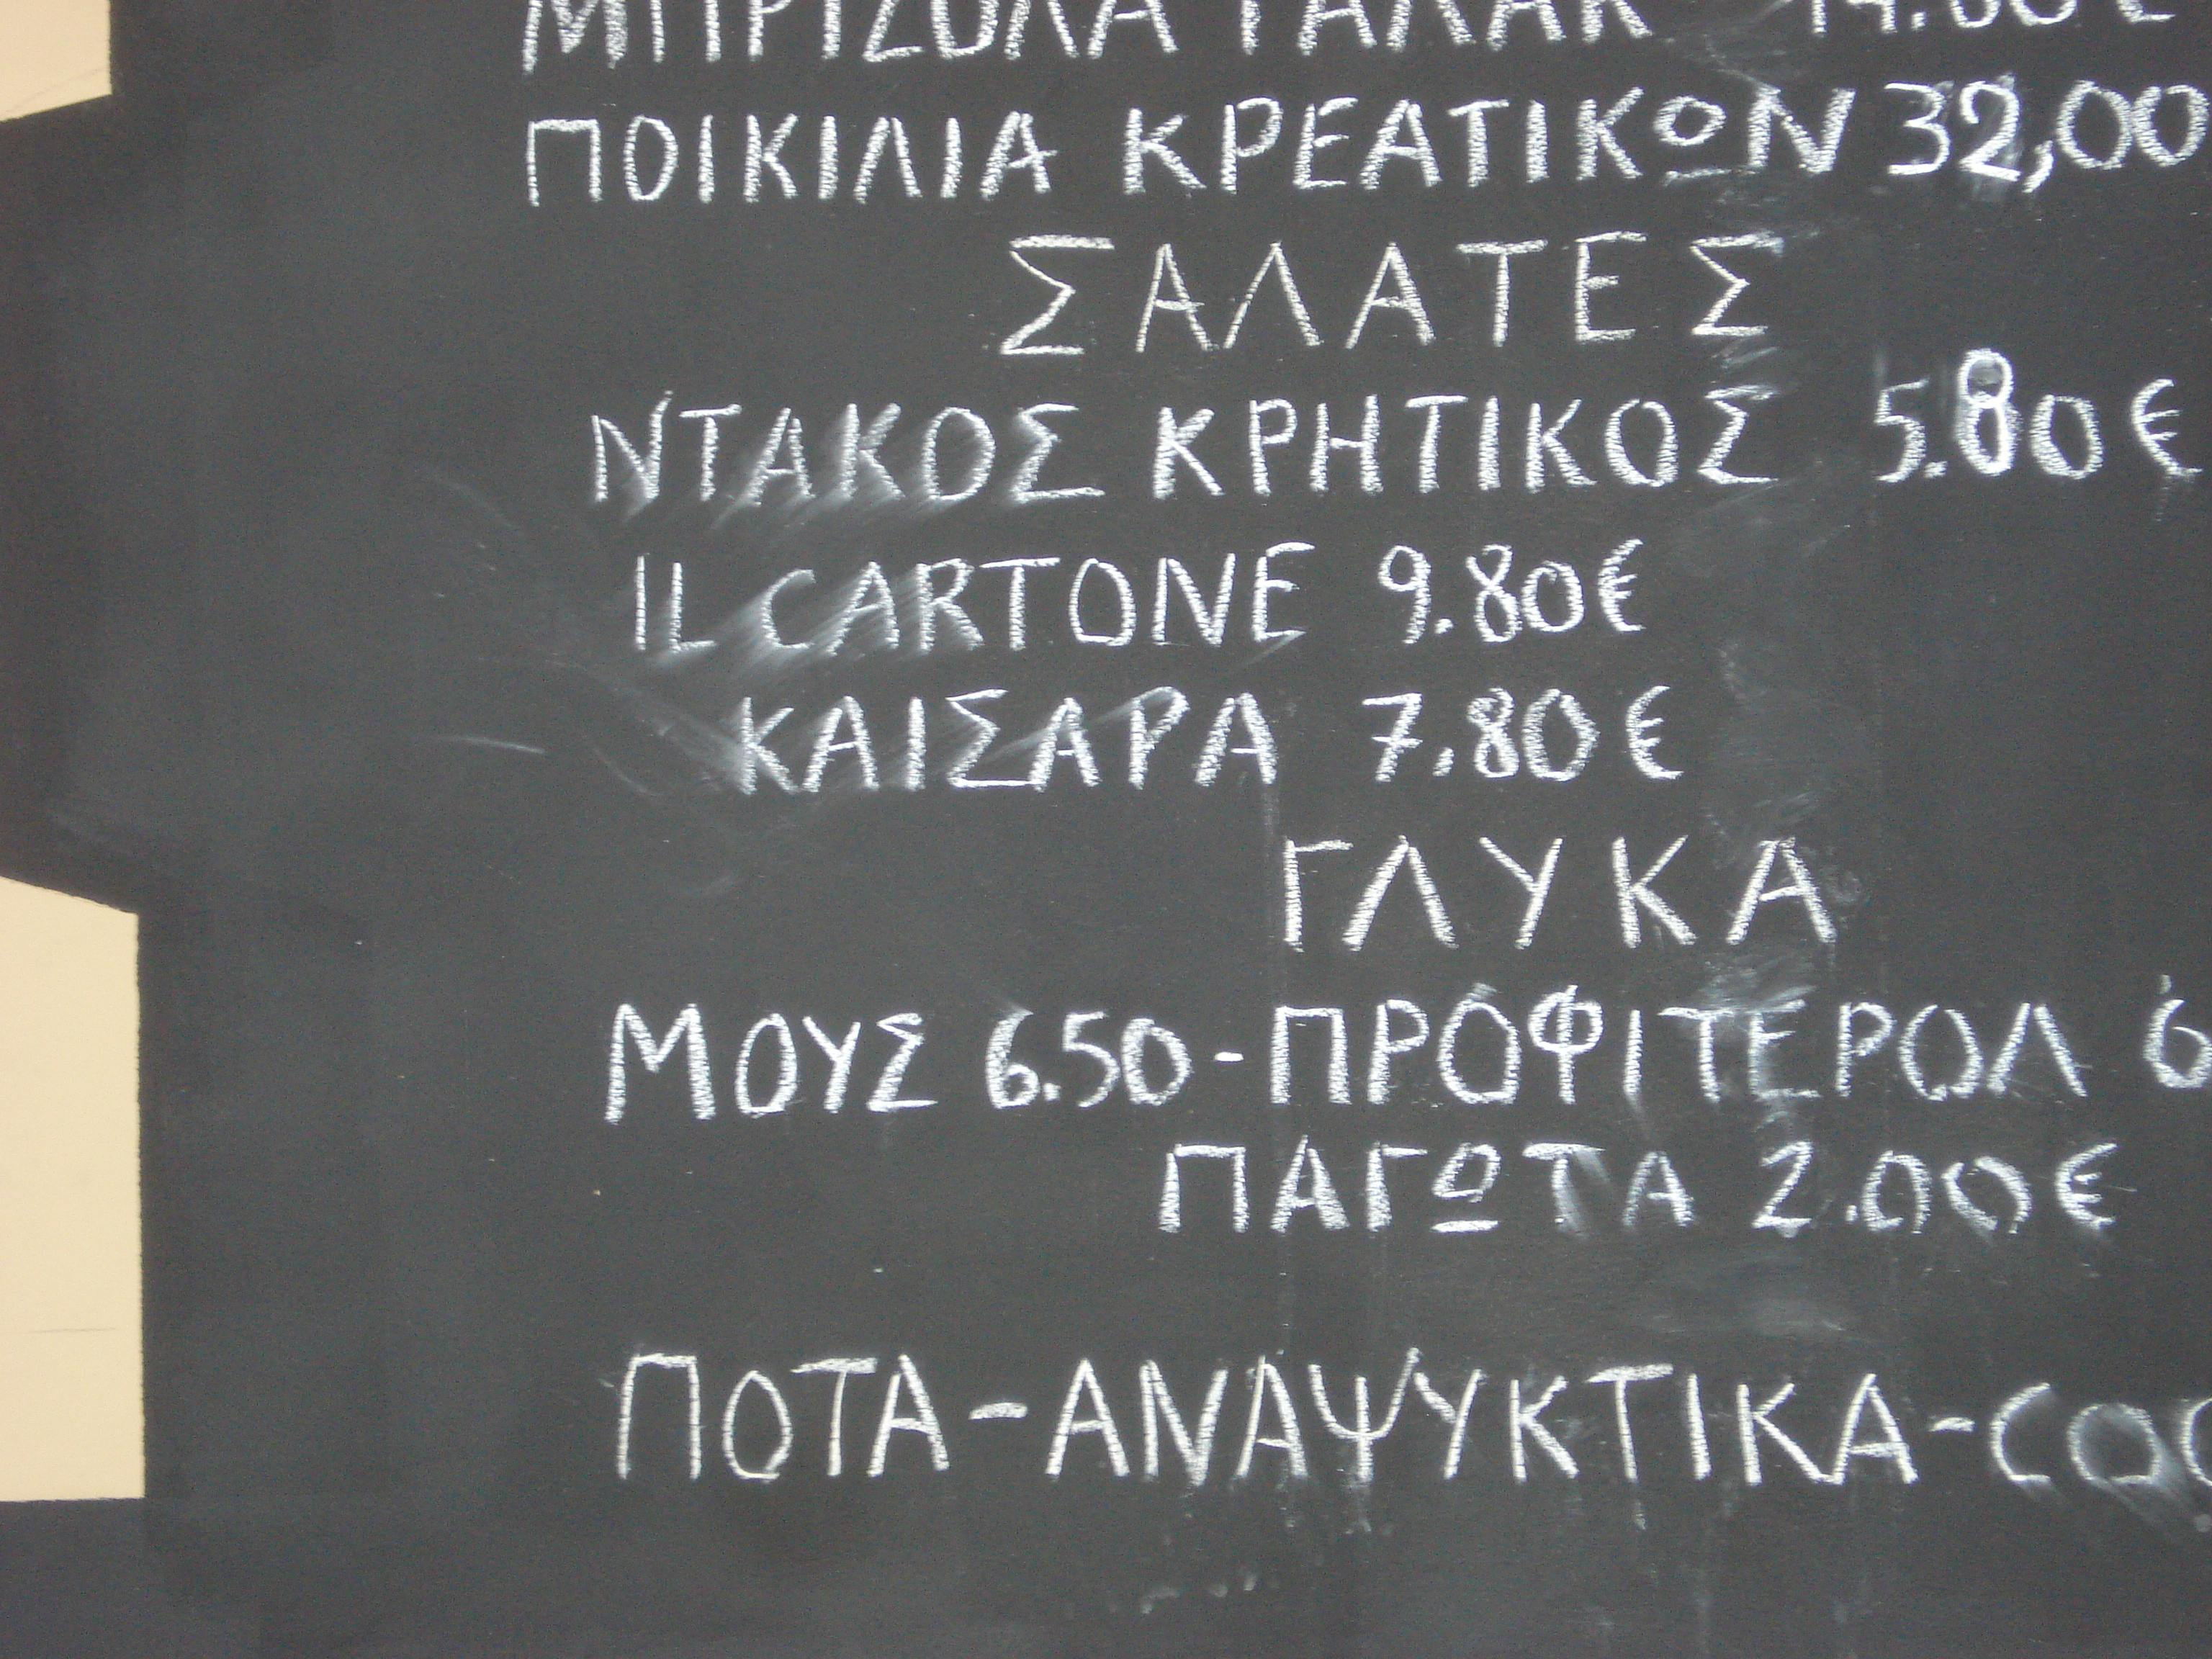 ΜΠΡΙΖΟΛΑ ΓΑΛΑΚ
ΠΟΙΚΙΛΙΑ ΚΡΕΑΤΙΚΩΝ 32,00
ΣΑΛΑΤΕΣ
ΝΤΑΚΟΣ ΚΡΗΤΙΚΟΣ 5.80€
IL CARTONE 9.80€
ΚΑΙΣΑΡΑ 7.80€
ΓΛΥΚΑ
ΜΟΥΣ 6.50-ΠΡΟΦΙΤΕΡΟΛ 6
ΠΑΓΩΤΑ 2.00€
ΠΟΤΑ-ΑΝΑΨΥΚΤΙΚΑ-CO